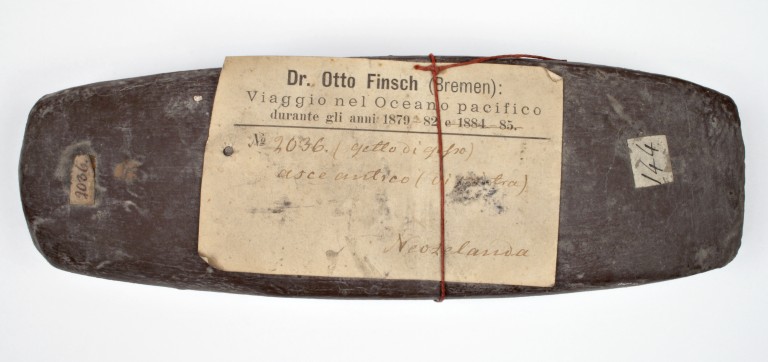 Dr. Otto Finsch (Bremen):
Viaggio nel Oceano pacifico
durante gli anni 1879-82 e 1884-85.
№ 2036. (getto di gesso)
asce antico (di pietra)
Neozelanda
2036.
144